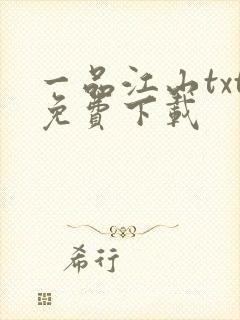 一品江山txt
免費下載
希行